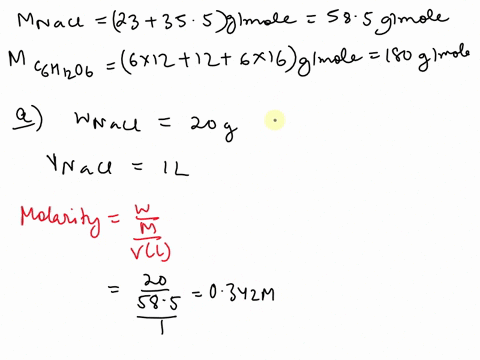 M NaCl = (23 + 35.5) g/mole = 58.5 g/mole
M C6H12O6 = (6×12 + 12 + 6×16) g/mole = 180 g/mole
a) W NaCl = 20 g
V NaCl = 1L
Molarity = W/M / V(L)
= 20/58.5 / 1 = 0.342M